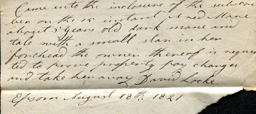 Came into the inclosure of the subscri
ber on the 12 instant a red Mare
about 5 years old dark mane and
tale with a small star in her
forehead the owner thereof is reques
ted to prove property pay charges
and take her away David Locke
Epsom August 13th 1821